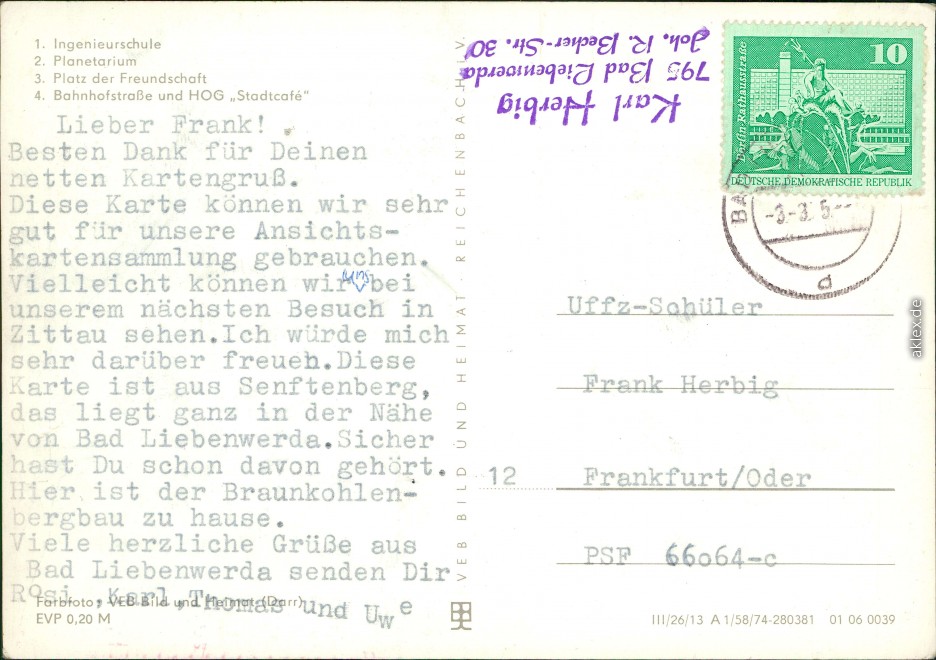 1. Ingenieurschule
2. Planetarium
3. Platz der Freundschaft
4. Bahnhofstraße und HOG „Stadtcafé"
Lieber Frank!
Besten Dank für Deinen
netten Kartengruß.
Diese Karte können wir sehr
gut für unsere Ansichts-
kartensammlung gebrauchen.
Vielleicht können wir uns bei
unserem nächsten Besuch in
Zittau sehen.Ich würde mich
sehr darüber freueh.Diese
Karte ist aus Senftenberg,
das liegt ganz in der Nähe
von Bad Liebenwerda.Sicher
hast Du schon davon gehört.
Hier ist der Braunkohlen-
bergbau zu hause.
Viele herzliche Grüße aus
Bad Liebenwerda senden Dir
Rosi ,Karl Thomas und Uwe
Farbfoto: VEB Bild und Heimat (Darr)
EVP 0,20 M
VEB BILD UND HEIMAT REICHENBACH I. V.
Karl Herbig
795 Bad Liebenwerda
Joh. R. Becher-Str. 30
10
Berlin Rathausstraße
DEUTSCHE DEMOKRATISCHE REPUBLIK
-3.-3.5.--
d
Uffz-Schüler
Frank Herbig
12 Frankfurt/Oder
PSF 66o64-c
III/26/13 A 1/58/74-280381 01 06 0039
aklex.de